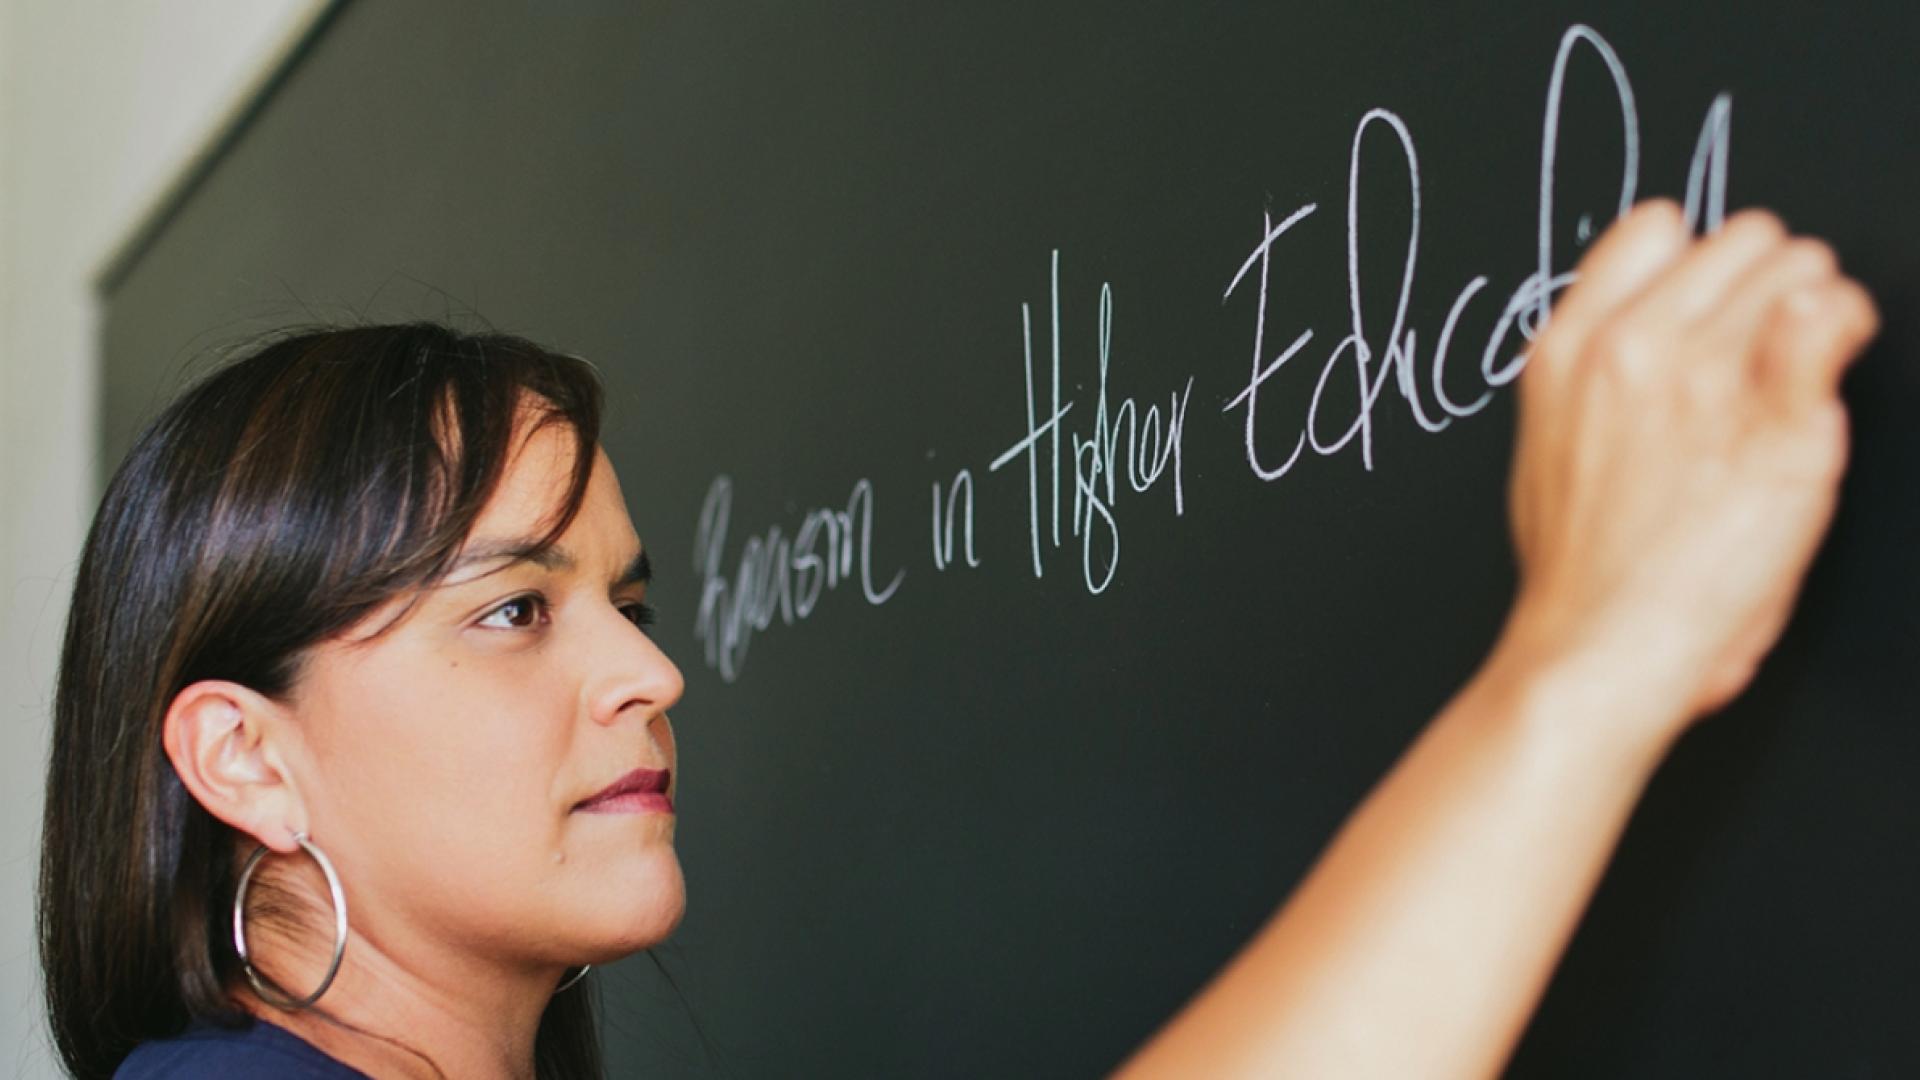 Racism in Higher Educati